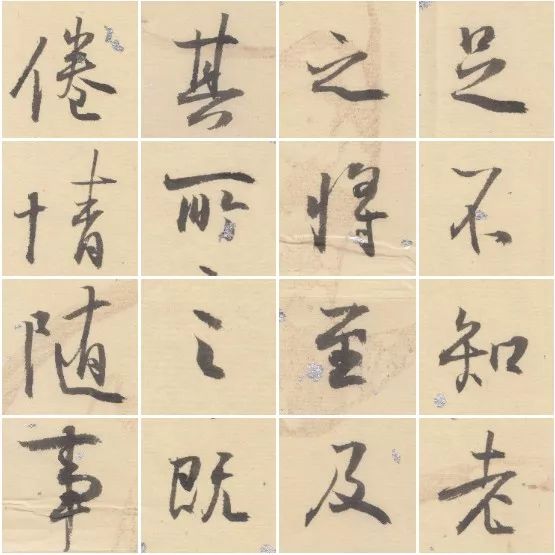 足不知老
之将至及
其所之既
倦情随事